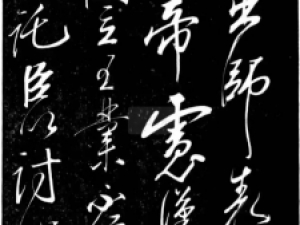 出師表
帝慮漢
立王業不
託臣以討